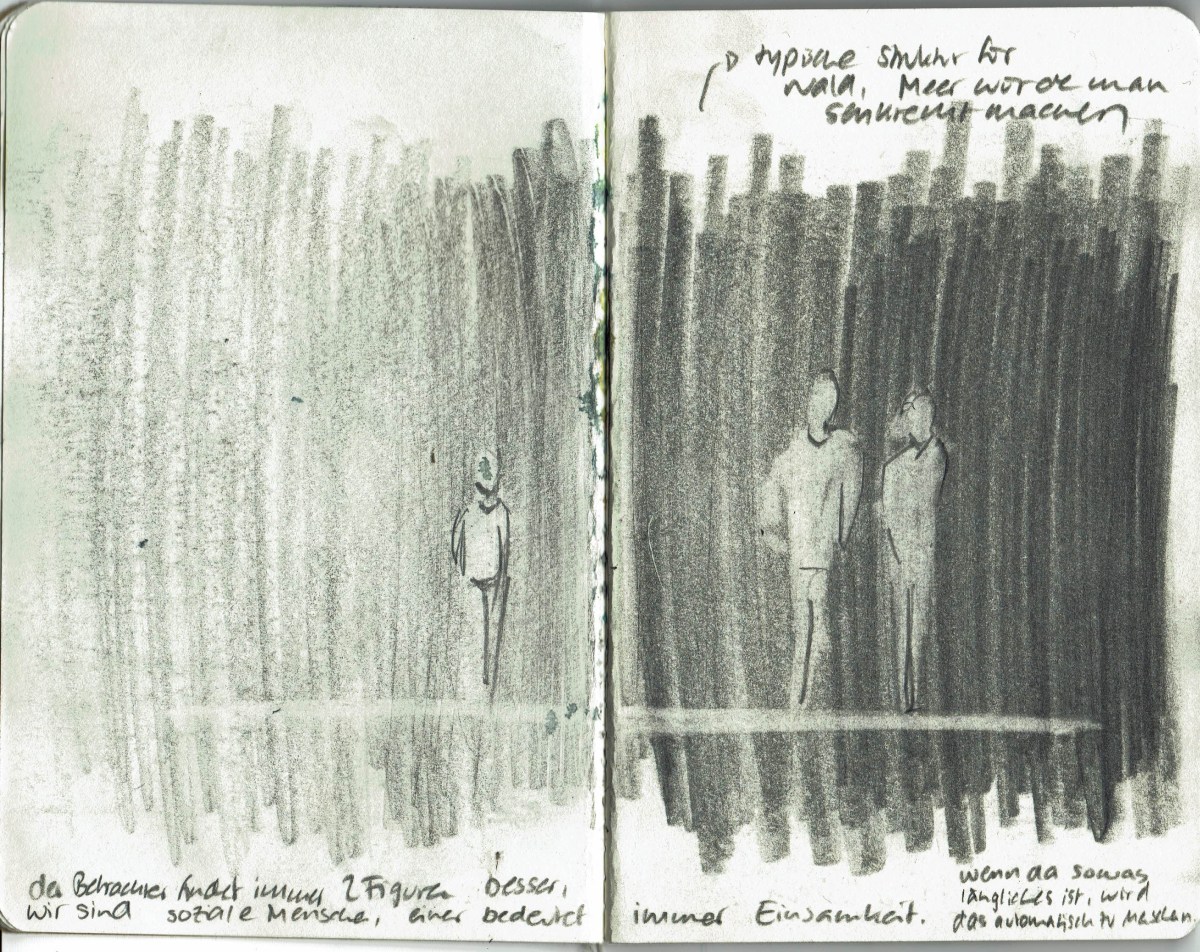 typische Struktur für
Wald, Meer würde man
senkrecht machen
der Betrachter findet immer 2 Figuren besser,
wir sind soziale Mensche, einer bedeutet immer Einsamkeit.
wenn da sowas
längliches ist, wird
das automatisch zu Maschen